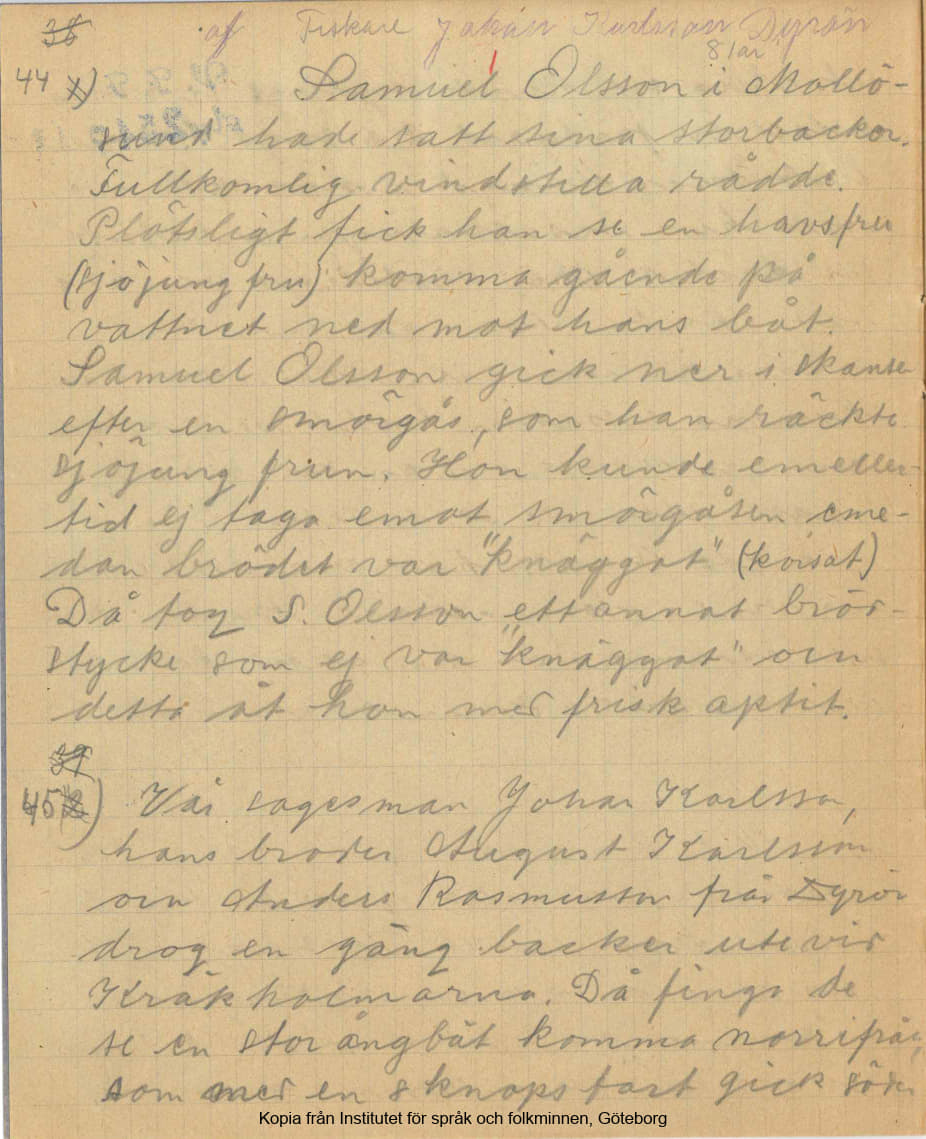 38
af Fiskare Johan Karlsson Dyrön
81 år
44 1) Samuel Olsson i Mollö-
sund hade satt sina storbackor.
Fullkomlig vindstilla rådde.
Plötsligt fick han se en havsfru
(sjöjungfru) komma gående på
vattnet ned mot hans båt.
Samuel Olsson gick ner i skansen
efter en smörgås, som han räckte
sjöjungfrun. Hon kunde emeller-
tid ej taga emot smörgåsen eme-
dan brödet var "knäggat" (korsat)
Då tog S. Olsson ett annat bröd-
stycke som ej var "knäggat" och
detta åt hon med frisk aptit.
39
45) Vår sagesman Johan Karlsson,
hans broder August Karlsson
och Anders Rasmusson från Dyrön
drog en gång backer ute vid
Kråkholmarna. Då fingo de
se en stor ångbåt komma norrifrån,
som med en 8 knops fart gick söder
Kopia från Institutet för språk och folkminnen, Göteborg